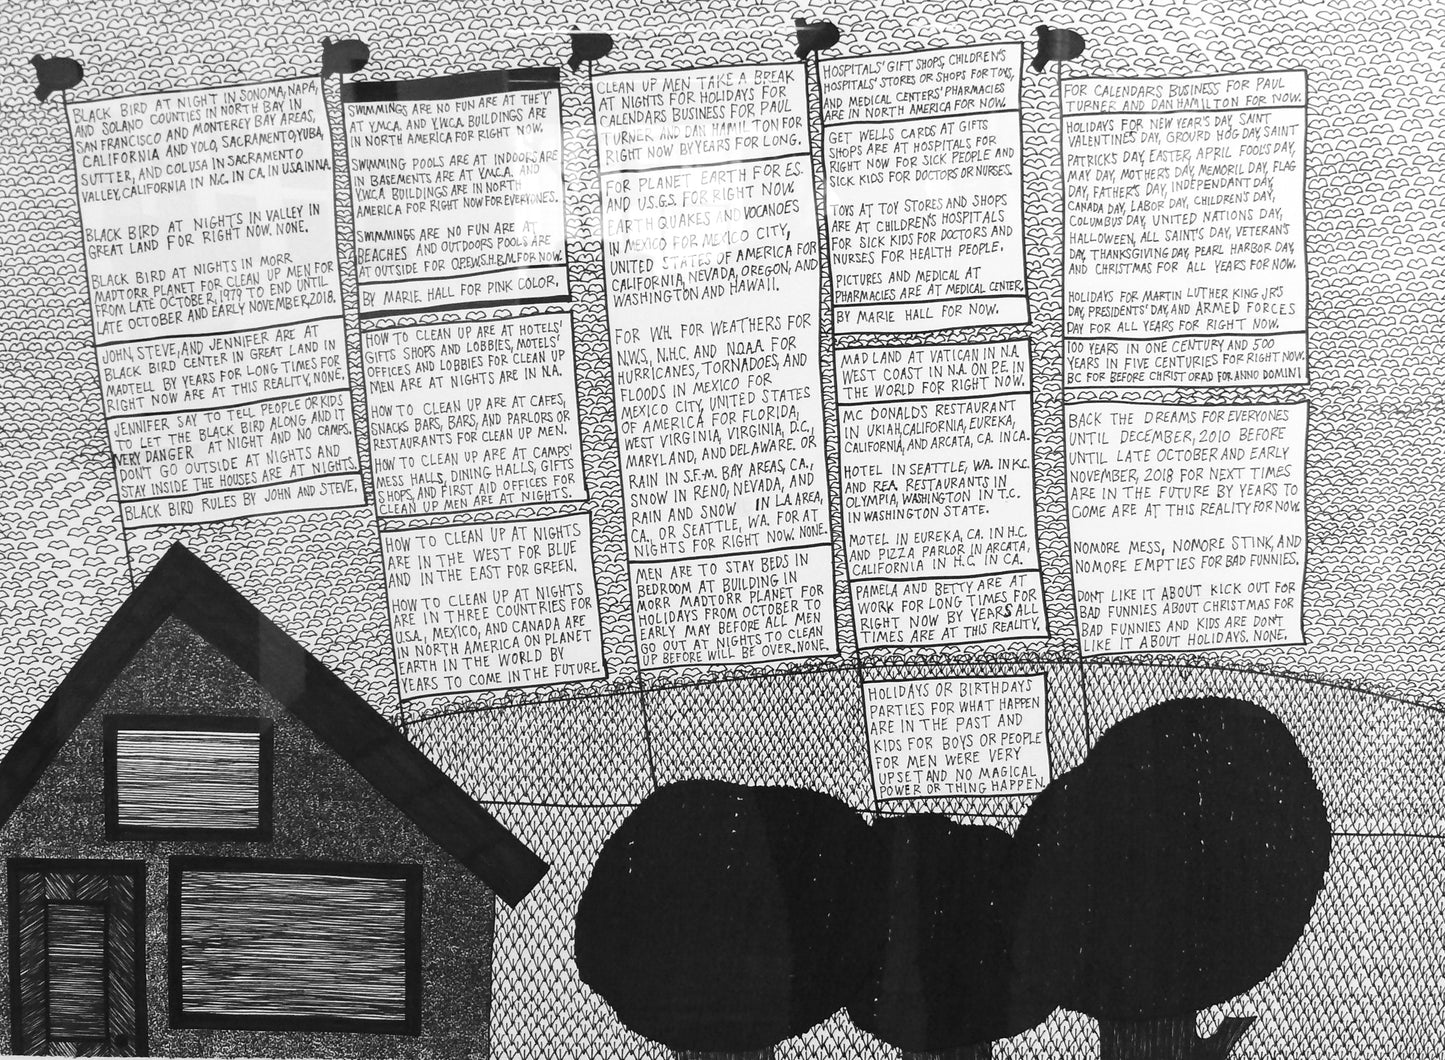 BLACK BIRD AT NIGHT IN SONOMA, NAPA,
AND SOLANO COUNTIES IN NORTH BAY IN
SAN FRANCISCO AND MONTEREY BAY AREAS,
CALIFORNIA AND YOLO, SACRAMENTO, YUBA,
SUTTER, AND COLUSA IN SACRAMENTO
VALLEY, CALIFORNIA IN N.C. IN CA. IN U.S.A. IN N.A.
BLACK BIRD AT NIGHTS IN VALLEY IN
GREAT LAND FOR RIGHT NOW. NONE.
BLACK BIRD AT NIGHTS IN MORR
MADTORR PLANET FOR CLEAN UP MEN FOR
FROM LATE OCTOBER, 1979 TO END UNTIL
LATE OCTOBER AND EARLY NOVEMBER, 2018.
JOHN, STEVE, AND JENNIFER ARE AT
BLACK BIRD CENTER IN GREAT LAND IN
MADTELL BY YEARS FOR LONG TIMES FOR
RIGHT NOW ARE AT THIS REALITY, NONE.
JENNIFER SAY TO TELL PEOPLE OR KIDS
TO LET THE BLACK BIRD ALONG AND IT
VERY DANGER AT NIGHT AND NO CAMPS.
DON'T GO OUTSIDE AT NIGHTS AND
STAY INSIDE THE HOUSES ARE AT NIGHTS.
BLACK BIRD RULES BY JOHN AND STEVE.
SWIMMINGS ARE NO FUN ARE AT THE 'Y'
AT Y.M.C.A. AND Y.W.C.A. BUILDINGS ARE
IN NORTH AMERICA FOR RIGHT NOW.
SWIMMING POOLS ARE AT INDOORS ARE
IN BASEMENTS ARE AT Y.M.C.A. AND
Y.W.C.A. BUILDINGS ARE IN NORTH
AMERICA FOR RIGHT NOW FOR EVERYONES.
SWIMMINGS ARE NO FUN ARE AT
BEACHES AND OUTDOORS POOLS ARE
AT OUTSIDE FOR FOR NOW.
BY MARIE HALL FOR PINK COLOR.
HOW TO CLEAN UP ARE AT HOTELS'
GIFTS SHOPS AND LOBBIES, MOTELS'
OFFICES AND LOBBIES FOR CLEAN UP
MEN ARE AT NIGHTS ARE IN N.A.
HOW TO CLEAN UP ARE AT CAFES,
SNACKS BARS, BARS, AND PARLORS OR
RESTAURANTS FOR CLEAN UP MEN.
HOW TO CLEAN UP ARE AT CAMPS'
MESS HALLS, DINING HALLS, GIFTS
SHOPS, AND FIRST AID OFFICES FOR
CLEAN UP MEN ARE AT NIGHTS.
HOW TO CLEAN UP AT NIGHTS
ARE IN THE WEST FOR BLUE
AND IN THE EAST FOR GREEN.
HOW TO CLEAN UP AT NIGHTS
ARE IN THREE COUNTRIES FOR
U.S.A., MEXICO, AND CANADA ARE
IN NORTH AMERICA ON PLANET
EARTH IN THE WORLD BY
YEARS TO COME IN THE FUTURE.
CLEAN UP MEN TAKE A BREAK
AT NIGHTS FOR HOLIDAYS FOR
CALENDARS BUSINESS FOR PAUL
TURNER AND DAN HAMILTON FOR
RIGHT NOW BY YEARS FOR LONG.
FOR PLANET EARTH FOR E.S.
AND U.S.G.S. FOR RIGHT NOW.
EARTH QUAKES AND VOCANOES
IN MEXICO FOR MEXICO CITY,
UNITED STATES OF AMERICA FOR
CALIFORNIA, NEVADA, OREGON, AND
WASHINGTON AND HAWAII.
FOR W.H. FOR WEATHERS FOR
N.W.S., N.H.C. AND N.O.A.A. FOR
HURRICANES, TORNADOES, AND
FLOODS IN MEXICO FOR
MEXICO CITY, UNITED STATES
OF AMERICA FOR FLORIDA,
WEST VIRGINIA, VIRGINIA, D.C.,
MARYLAND, AND DELAWARE. OR
RAIN IN S.F.-M. BAY AREAS, CA.,
SNOW IN RENO, NEVADA, AND
RAIN AND SNOW IN L.A. AREA,
CA., OR SEATTLE, WA. FOR AT
NIGHTS FOR RIGHT NOW. NONE.
MEN ARE TO STAY BEDS IN
BEDROOM AT BUILDING IN
MORR MADTORR PLANET FOR
HOLIDAYS FROM OCTOBER TO
EARLY MAY BEFORE ALL MEN
GO OUT AT NIGHTS TO CLEAN
UP BEFORE WILL BE OVER. NONE.
HOSPITALS' GIFT SHOPS, CHILDREN'S
HOSPITALS' STORES OR SHOPS FOR TOYS,
AND MEDICAL CENTERS' PHARMACIES
ARE IN NORTH AMERICA FOR NOW.
GET WELLS CARDS AT GIFTS
SHOPS ARE AT HOSPITALS FOR
RIGHT NOW FOR SICK PEOPLE AND
SICK KIDS FOR DOCTORS OR NURSES.
TOYS AT TOY STORES AND SHOPS
ARE AT CHILDREN'S HOSPITALS
FOR SICK KIDS FOR DOCTORS AND
NURSES FOR HEALTH PEOPLE.
PICTURES AND MEDICAL AT
PHARMACIES ARE AT MEDICAL CENTER.
BY MARIE HALL FOR NOW.
MAD LAND AT VATICAN IN N.A.
WEST COAST IN N.A. ON P.E. IN
THE WORLD FOR RIGHT NOW.
MC DONALD'S RESTAURANT
IN UKIAH, CALIFORNIA, EUREKA,
CALIFORNIA, AND ARCATA, CA. IN CA.
HOTEL IN SEATTLE, WA. IN K.C.
AND R.E.A. RESTAURANTS IN
OLYMPIA, WASHINGTON IN T.C.
IN WASHINGTON STATE.
MOTEL IN EUREKA, CA. IN H.C.
AND PIZZA PARLOR IN ARCATA,
CALIFORNIA IN H.C. IN CA.
PAMELA AND BETTY ARE AT
WORK FOR LONG TIMES FOR
RIGHT NOW BY YEARS ALL
TIMES ARE AT THIS REALITY.
HOLIDAYS OR BIRTHDAYS
PARTIES FOR WHAT HAPPEN
ARE IN THE PAST AND
KIDS FOR BOYS OR PEOPLE
FOR MEN WERE VERY
UPSET AND NO MAGICAL
POWER OR THING HAPPEN.
FOR CALENDARS BUSINESS FOR PAUL
TURNER AND DAN HAMILTON FOR NOW.
HOLIDAYS FOR NEW YEAR'S DAY, SAINT
VALENTINE'S DAY, GROUND HOG DAY, SAINT
PATRICK'S DAY, EASTER, APRIL FOOL'S DAY,
MAY DAY, MOTHER'S DAY, MEMORIL DAY, FLAG
DAY, FATHER'S DAY, INDEPENDANT DAY,
CANADA DAY, LABOR DAY, CHILDREN'S DAY,
COLUMBUS DAY, UNITED NATIONS DAY,
HALLOWEEN, ALL SAINT'S DAY, VETERAN'S
DAY, THANKSGIVING DAY, PEARL HARBOR DAY,
AND CHRISTMAS FOR ALL YEARS FOR NOW.
HOLIDAYS FOR MARTIN LUTHER KING JR'S
DAY, PRESIDENTS' DAY, AND ARMED FORCES
DAY FOR ALL YEARS FOR RIGHT NOW.
100 YEARS IN ONE CENTURY AND 500
YEARS IN FIVE CENTURIES FOR RIGHT NOW.
BC FOR BEFORE CHRIST OR AD FOR ANNO DOMINI
BACK THE DREAMS FOR EVERYONES
UNTIL DECEMBER, 2010 BEFORE
UNTIL LATE OCTOBER AND EARLY
NOVEMBER, 2018 FOR NEXT TIMES
ARE IN THE FUTURE BY YEARS TO
COME ARE AT THIS REALITY FOR NOW.
NOMORE MESS, NOMORE STINK, AND
NOMORE EMPTIES FOR BAD FUNNIES.
DON'T LIKE IT ABOUT KICK OUT FOR
BAD FUNNIES ABOUT CHRISTMAS FOR
BAD FUNNIES AND KIDS ARE DON'T
LIKE IT ABOUT HOLIDAYS. NONE.